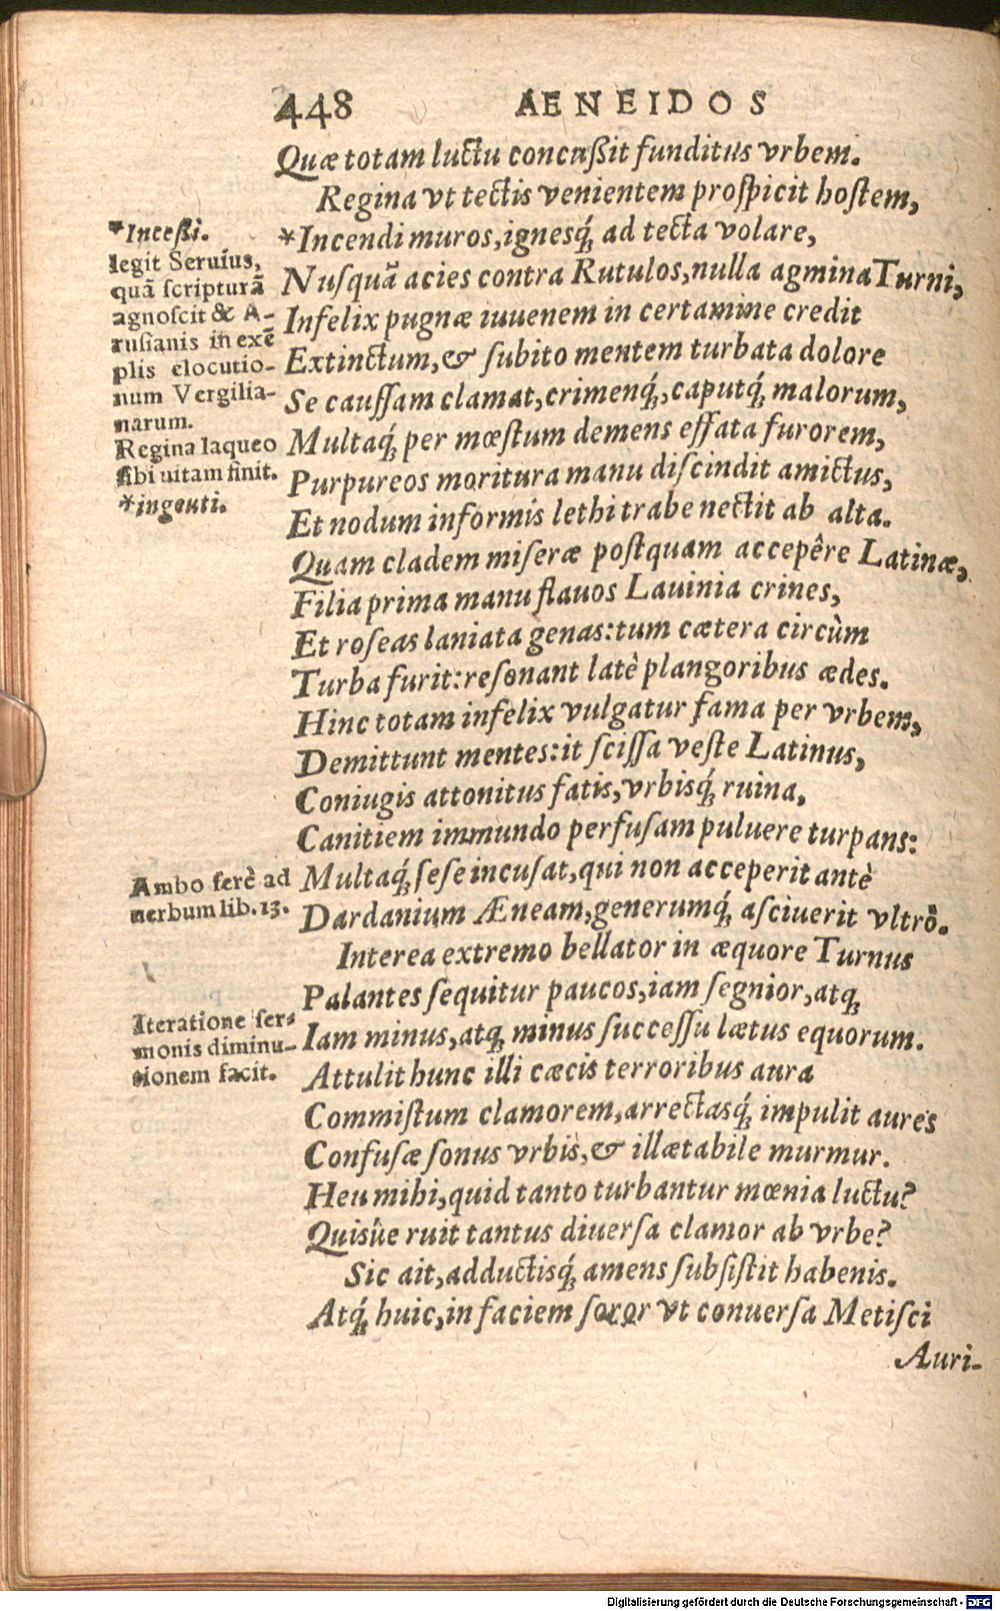 448 AENEIDOS
Quæ totam luctu concußit funditus vrbem.
Regina vt tectis venientem prospicit hostem,
*Incendi muros, ignesq́; ad tecta volare,
Nusquã acies contra Rutulos, nulla agmina Turni,
Infelix pugnæ iuuenem in certamine credit
Extinctum, & subito mentem turbata dolore
Se caussam clamat, crimenq́;, caputq́; malorum,
Multaq́; per mœstum demens effata furorem,
Purpureos moritura manu discindit amictus,
Et nodum informis lethi trabe nectit ab alta.
Quam cladem miseræ postquam accepêre Latinæ,
Filia prima manu flauos Lauinia crines,
Et roseas laniata genas: tum cætera circùm
Turba furit: resonant latè plangoribus ædes.
Hinc totam infelix vulgatur fama per vrbem,
Demittunt mentes: it scissa veste Latinus,
Coniugis attonitus fatis, vrbisq́; ruina,
Canitiem immundo perfusam puluere turpans:
Multaq́; sese incusat, qui non acceperit antè
Dardanium Æneam, generumq́; asciuerit vltrò.
Interea extremo bellator in æquore Turnus
Palantes sequitur paucos, iam segnior, atq;
Iam minus, atq; minus successu lætus equorum.
Attulit hunc illi cæcis terroribus aura
Commistum clamorem, arrectasq́; impulit aures
Confusæ sonus vrbis, & illætabile murmur.
Heu mihi, quid tanto turbantur mœnia luctu?
Quisûe ruit tantus diuersa clamor ab vrbe?
Sic ait, adductisq́; amens subsistit habenis.
Atq́; huic, in faciem soror vt conuersa Metisci
Auri-
*Inceßi.
legit Seruius,
quã scripturã
agnoscit & A-
rusianis in exẽ
plis elocutio-
num Vergilia-
narum.
Regina laqueo
sibi uitam finit.
*ingenti.
Ambo ferè ad
uerbum lib. 13.
Iteratione ser-
monis diminu-
tionem facit.
Digitalisierung gefördert durch die Deutsche Forschungsgemeinschaft - DFG